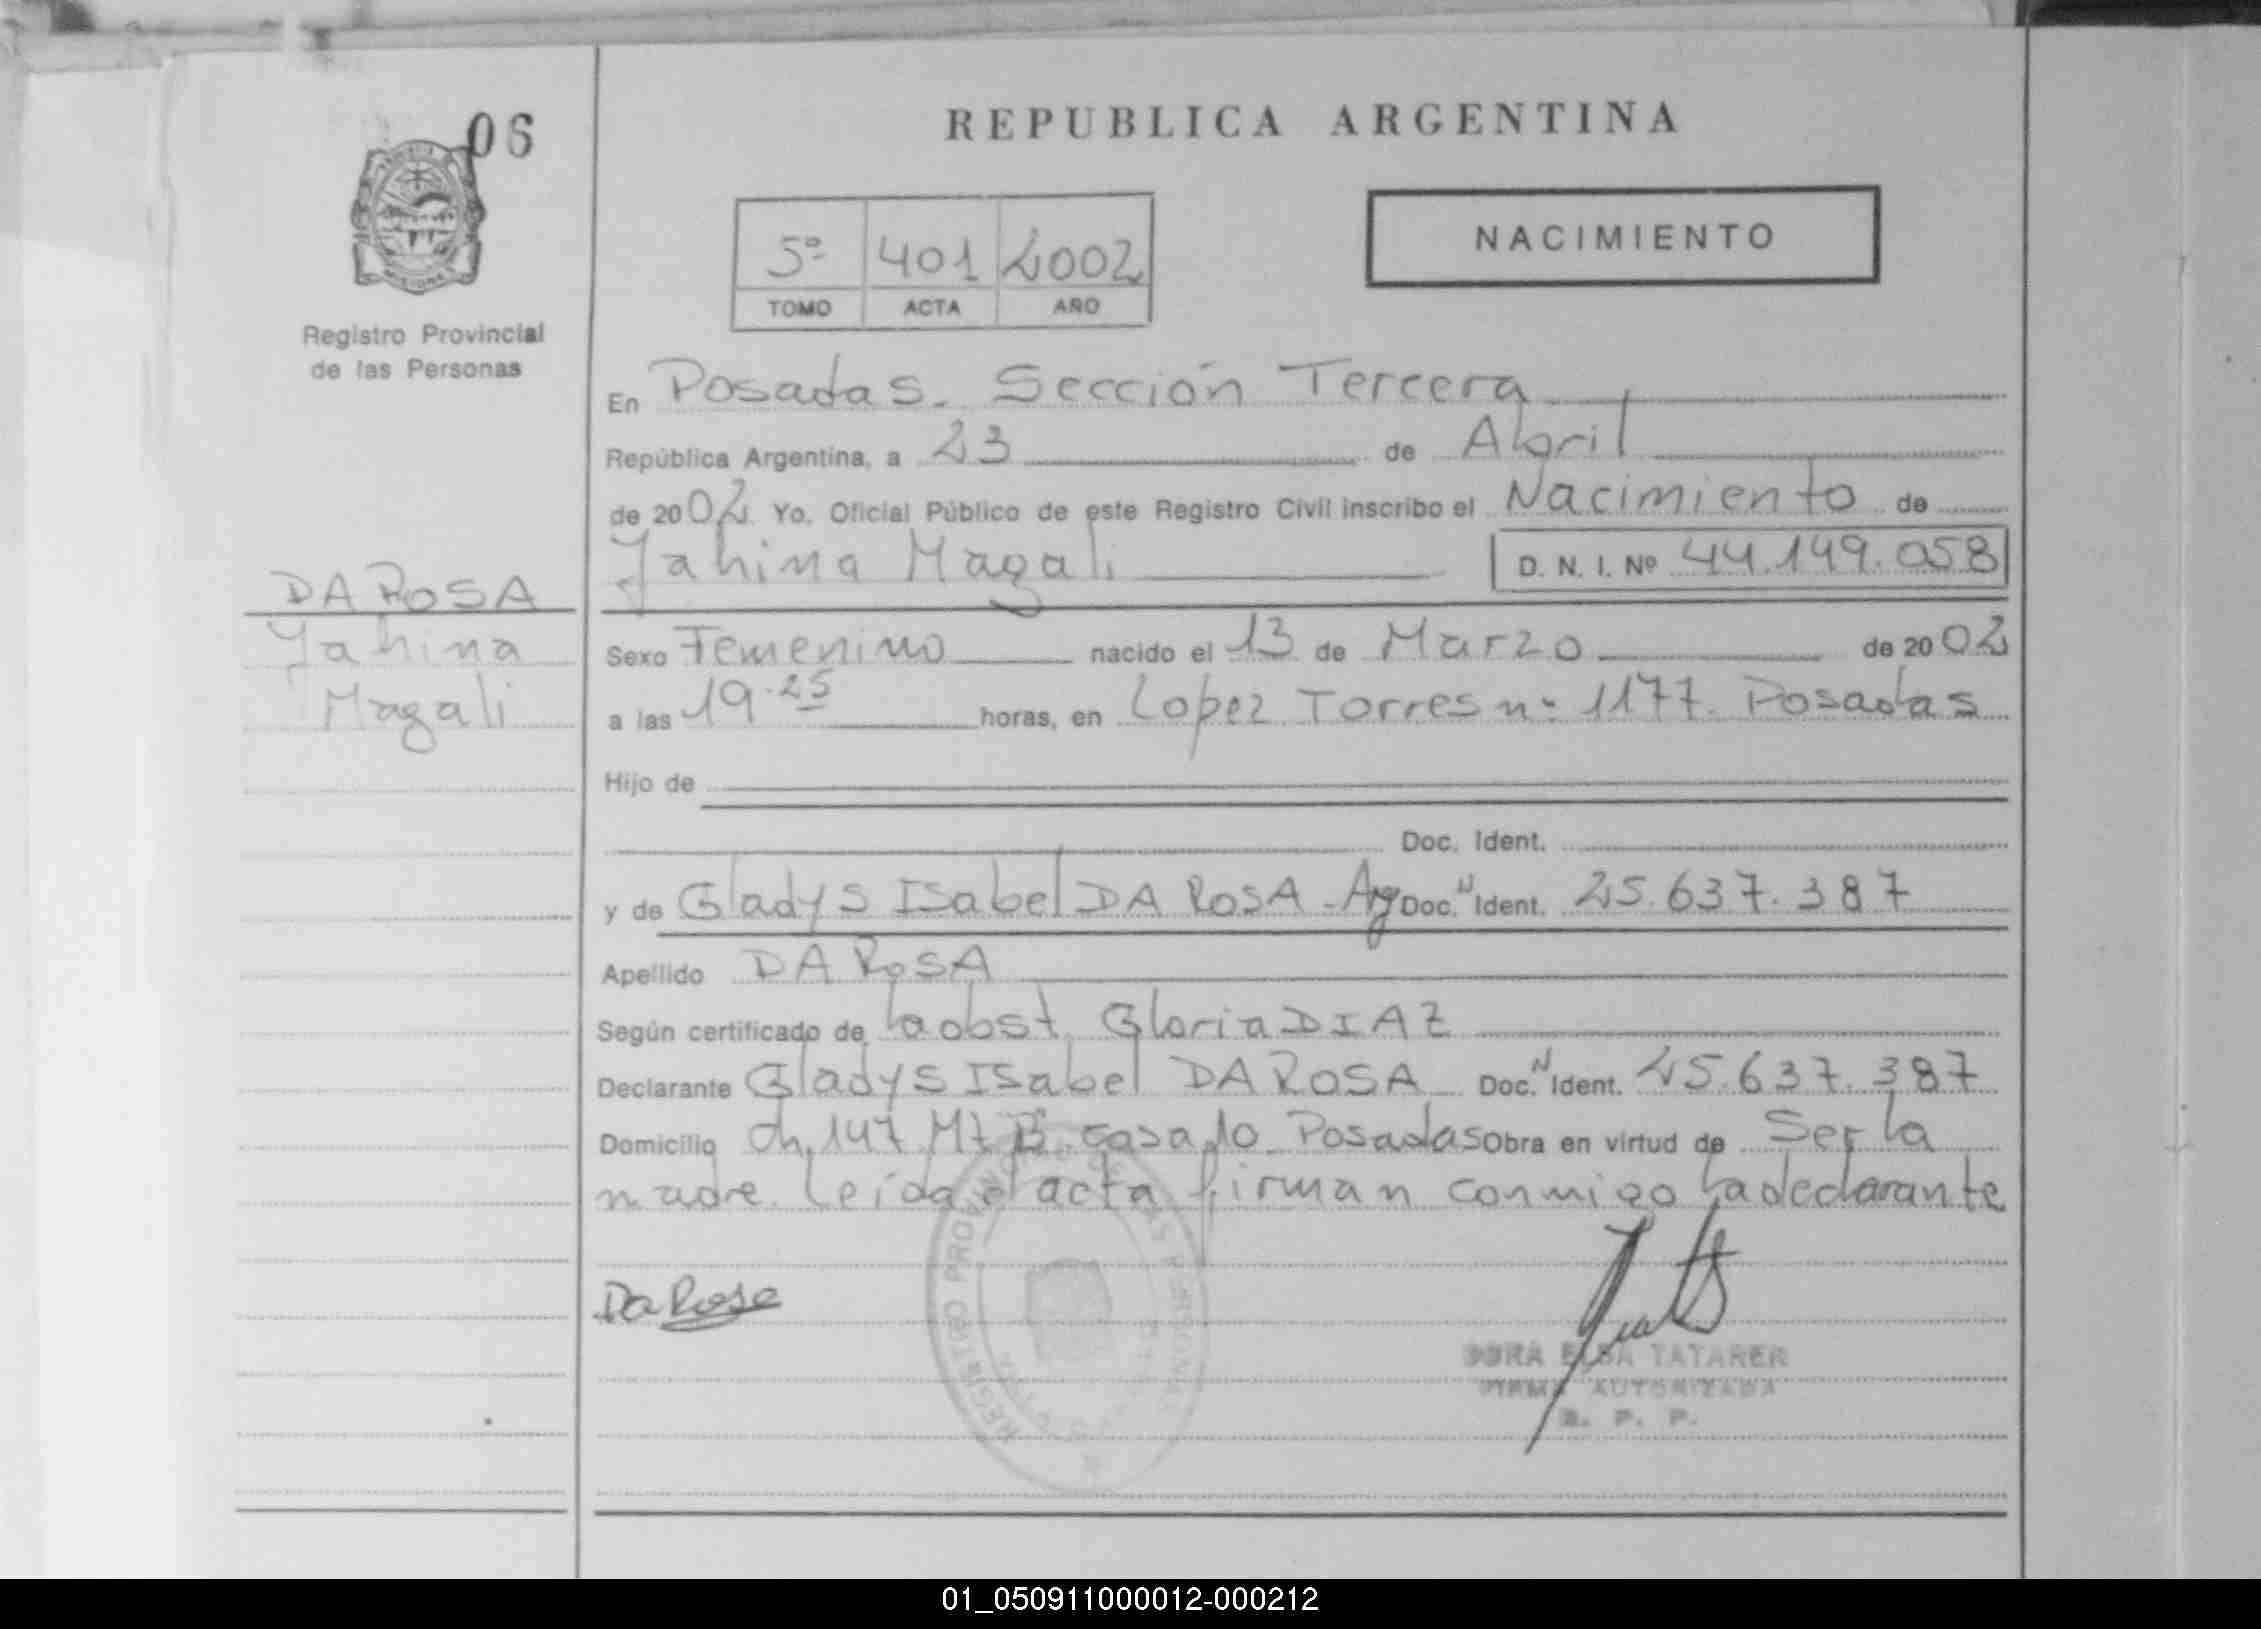 06
REPUBLICA ARGENTINA
5º 401 2002
TOMO ACTA AÑO
NACIMIENTO
Registro Provincial
de las Personas
En Posadas. Sección Tercera
República Argentina, a 23 de Abril
de 2002 Yo, Oficial Público de este Registro Civil inscribo el Nacimiento de
Yahina Magali D. N. I. Nº 44.149.058
DA ROSA
Yahina
Magali
Sexo Femenino nacido el 13 de Marzo de 2002
a las 19.25 horas, en Lopez Torres nº 1177. Posadas
Hijo de
Doc. Ident.
y de Gladys Isabel DA ROSA - Arg Doc. N Ident. 25.637.387
Apellido DA ROSA
Según certificado de la obst. Gloria DIAZ
Declarante Gladys Isabel DA ROSA Doc. N Ident. 25.637.387
Domicilio Ch. 147 Mz B casa 10 Posadas Obra en virtud de Ser la
madre. Leída el acta firman conmigo la declarante
Da Rosa
REGISTRO PROVINCIAL DE LAS PERSONAS
DORA ELSA TATAREN
FIRMA AUTORIZADA
R. P. P.
01_050911000012-000212